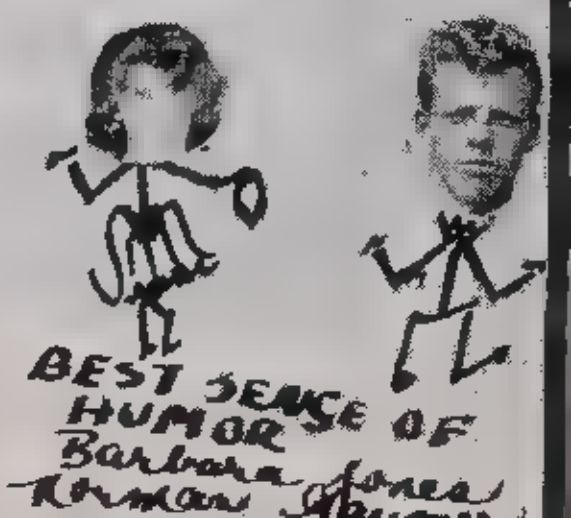 BEST SENSE OF
HUMOR
Barbara Jones
Norman